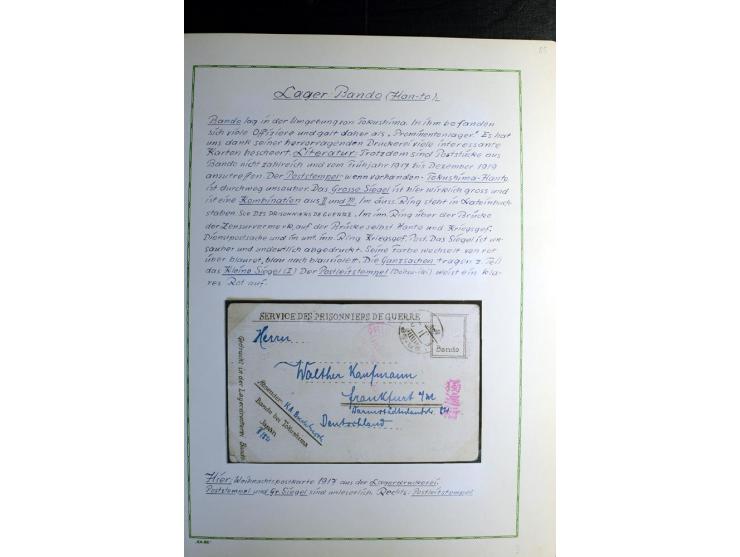 Lager Bando (Han-to).
Bando lag in der Umgebung von Tokushima. In ihm befanden
sich viele Offiziere und galt daher als „Prominentenlager." Es hat
uns dank seiner hervorragenden Druckerei viele interessante
Karten beschert. Literatur: Trotzdem sind Poststücke aus
Bando nicht zahlreich und vom Frühjahr 1917 bis Dezember 1919
anzutreffen. Der Poststempel - wenn vorhanden - Tokushima-Hanto
ist durchweg unsauber. Das Grosse Siegel ist hier wirklich gross und
ist eine Kombination aus II und IV. Im äuss. Ring steht in Lateinbuch-
staben SCE DES PRISONNIERS DE GUERRE. Im inn. Ring über der Brücke
der Zensurvermerk, auf der Brücke selbst Hanto und Kriegsgef.
Dienstpostsache und im unt. inn. Ring Kriegsgef. Post. Das Siegel ist un-
sauber und undeutlich abgedruckt. Seine Farbe wechselt von rot
über blaurot, blau nach blauviolett. Die Ganzsachen tragen z. Teil
das Kleine Siegel (I). Der Postleitstempel weist ein kla-
res Rot auf.
SERVICE DES PRISONNIERS DE GUERRE
Bando
Herrn
Walther Kaufmann
Frankfurt a/M
Deutschland
Absender:
Bando bei Tokushima
Japan
Gedruckt in der Lagerdruckerei Bando
Hier: Weihnachtspostkarte 1917 aus der Lagerdruckerei.
Poststempel und Gr. Siegel sind unleserlich. Rechts: Postleitstempel
„KA-BE"